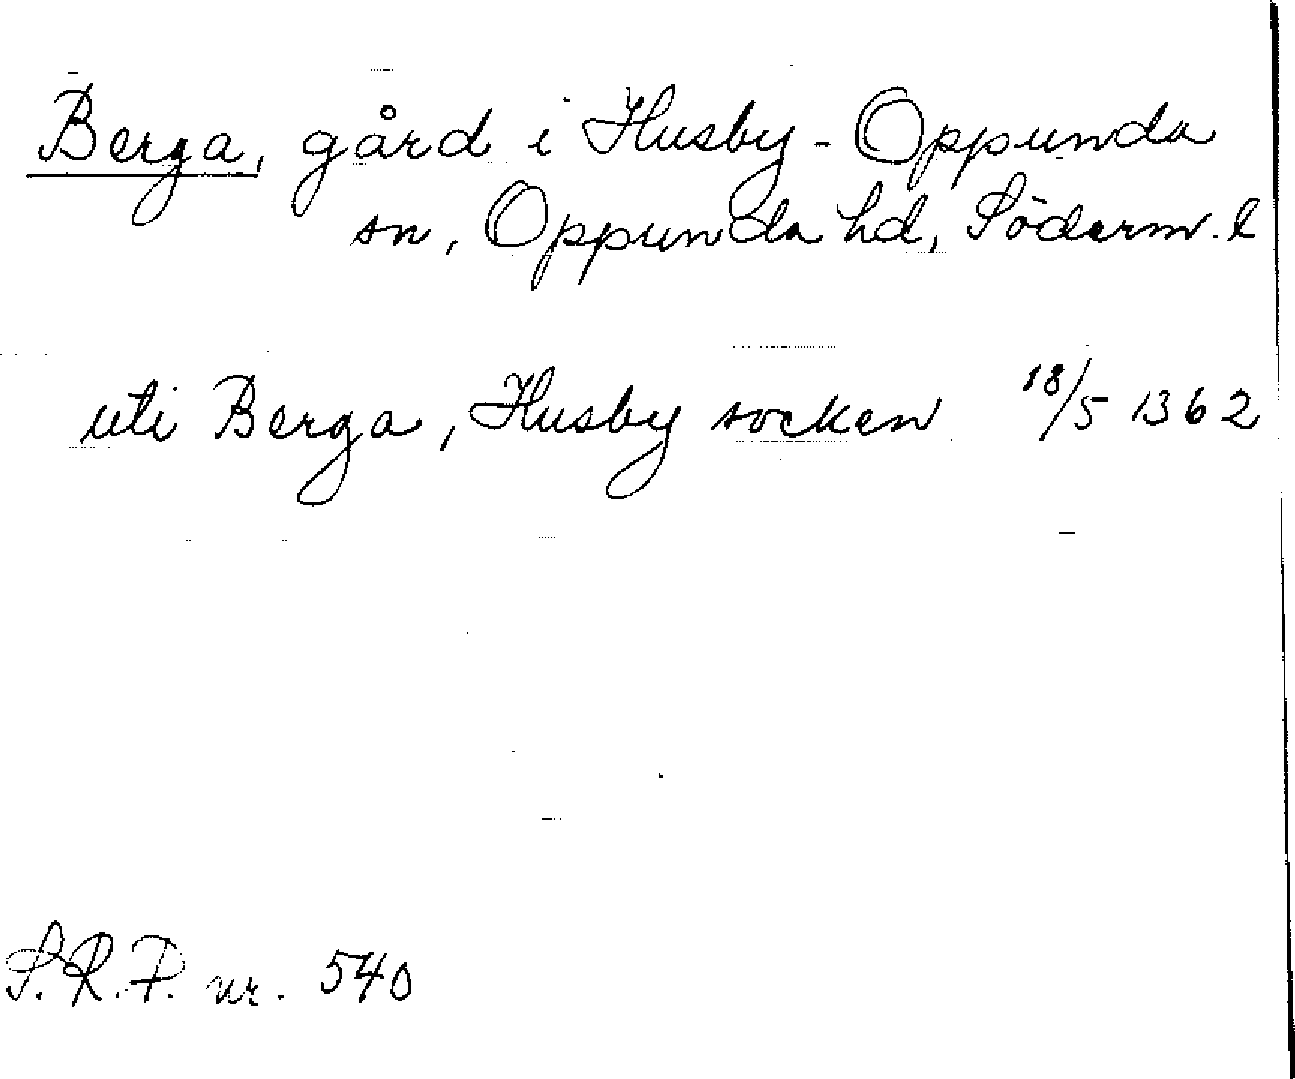 Berga, gård i Husby-Oppunda
sn, Oppunda hd, Söderm. l
uti Berga, Husby socken 18/5 1362
S.R.P. nr. 540